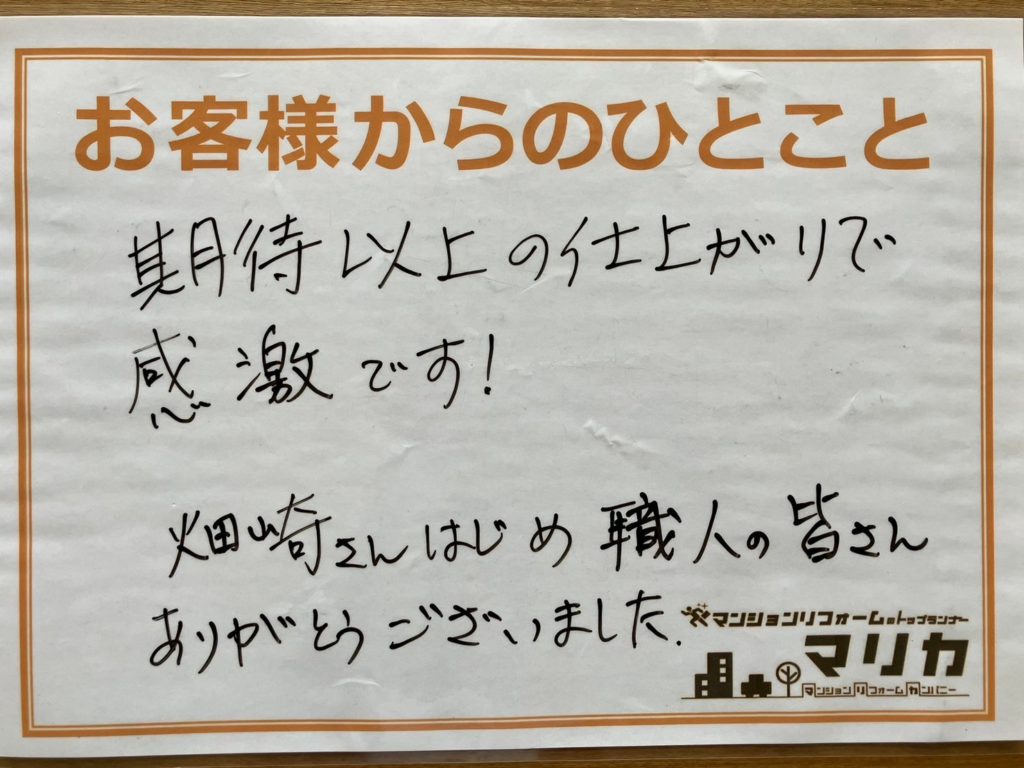 お客様からのひとこと
期待以上の仕上がりで
感激です!
畑崎さんはじめ職人の皆さん
ありがとうございました.
マンションリフォームのトップランナー
マリカ
マンションリフォームカンパニー